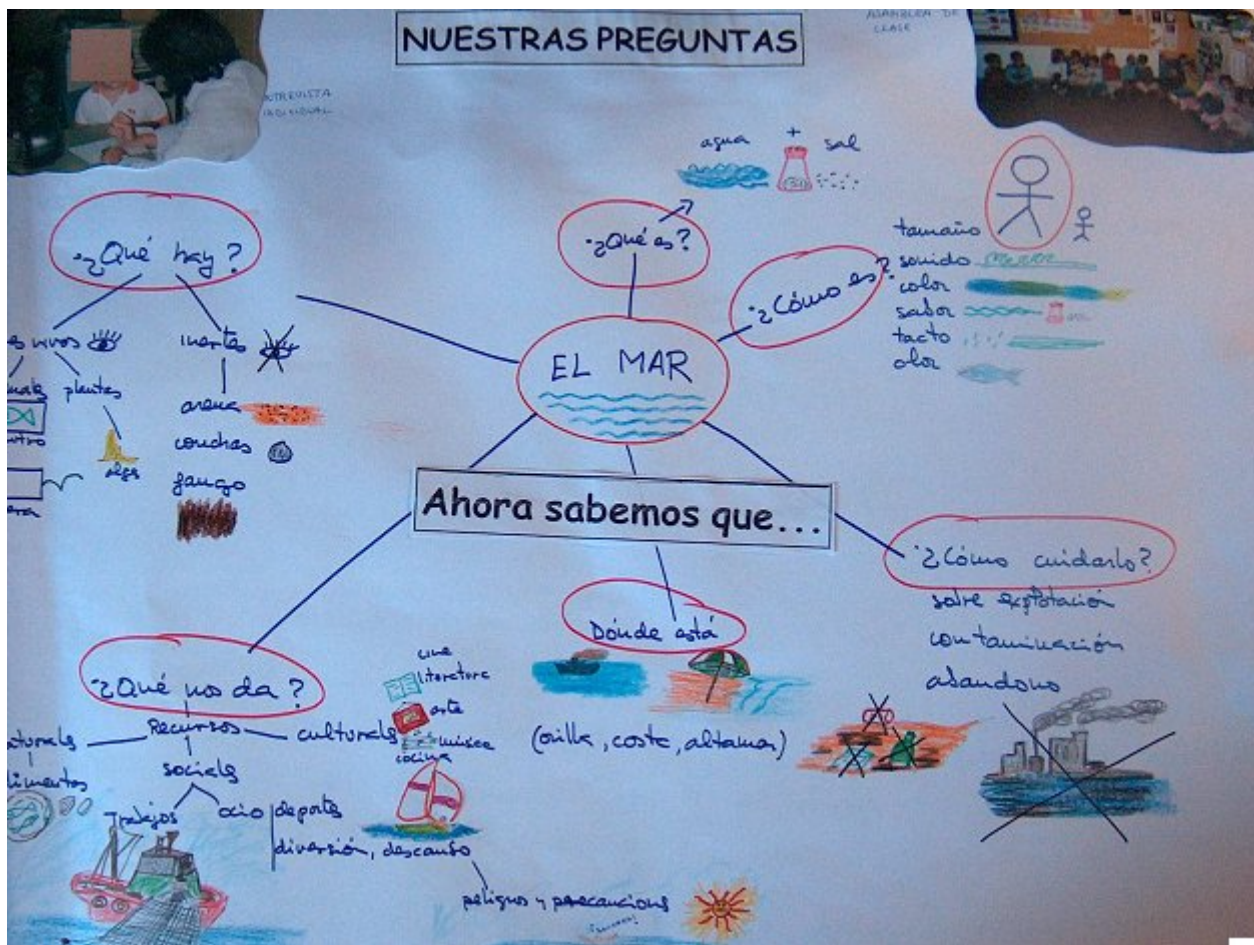 NUESTRAS PREGUNTAS
ASAMBLEA DE
CLASE
ENTREVISTA
INDIVIDUAL
agua + sal
¿Qué es?
¿Qué hay?
¿Cómo es?
tamaño
sonido
color
sabor
tacto
olor
EL MAR
es vivos
inertes
plantas
algas
arena
conchas
fango
Ahora sabemos que...
¿Cómo cuidarlo?
sobre explotación
contaminación
abandono
Dónde está
(orilla, costa, altamar)
¿Qué nos da?
Recursos
culturales
cine
literatura
arte
música
cocina
sociales
Trabajos
ocio
deportes
diversión, descanso
peligros y precauciones